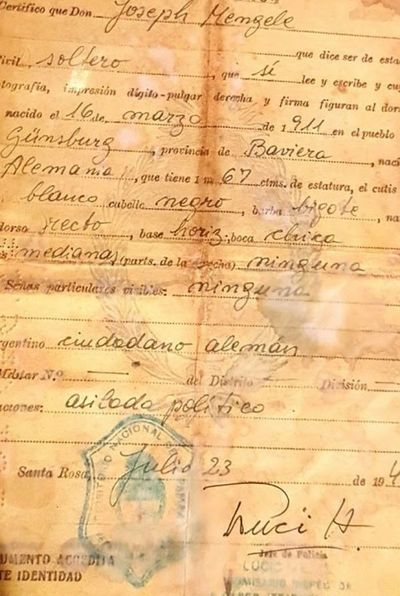 Certifico que Don Joseph Mengele
que dice ser de esta
civil soltero, que sí lee y escribe y cuy
otografía, impresión dígito-pulgar derecha y firma figuran al dor
nacido el 16 de marzo de 1911 en el pueblo
Günsburg, provincia de Baviera, naci
Alemania, que tiene 1 m 67 ctms. de estatura, el cutis
blanco cabello negro, barba bigote, na
dorso recto, base horiz. boca chica
medianas (parts. de la oreja) ninguna
Señas particulares visibles: ninguna
rgentino ciudadano alemán
Militar N.º del Distrito División
aciones: asilado político
NACIONAL
Santa Rosa, Julio 23 de 19
Jefe de Policía
LUCIO
UMENTO ACREDITA
TE IDENTIDAD